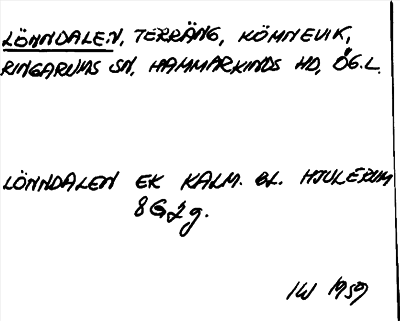 LÖNNDALEN, TERRÄNG, KÖMNEVIK,
RINGARUMS SN, HAMMARKINDS HD, ÖG.L.
LÖNNDALEN EK KALM. BL. HJULERUM
8G2g.
IW 1959